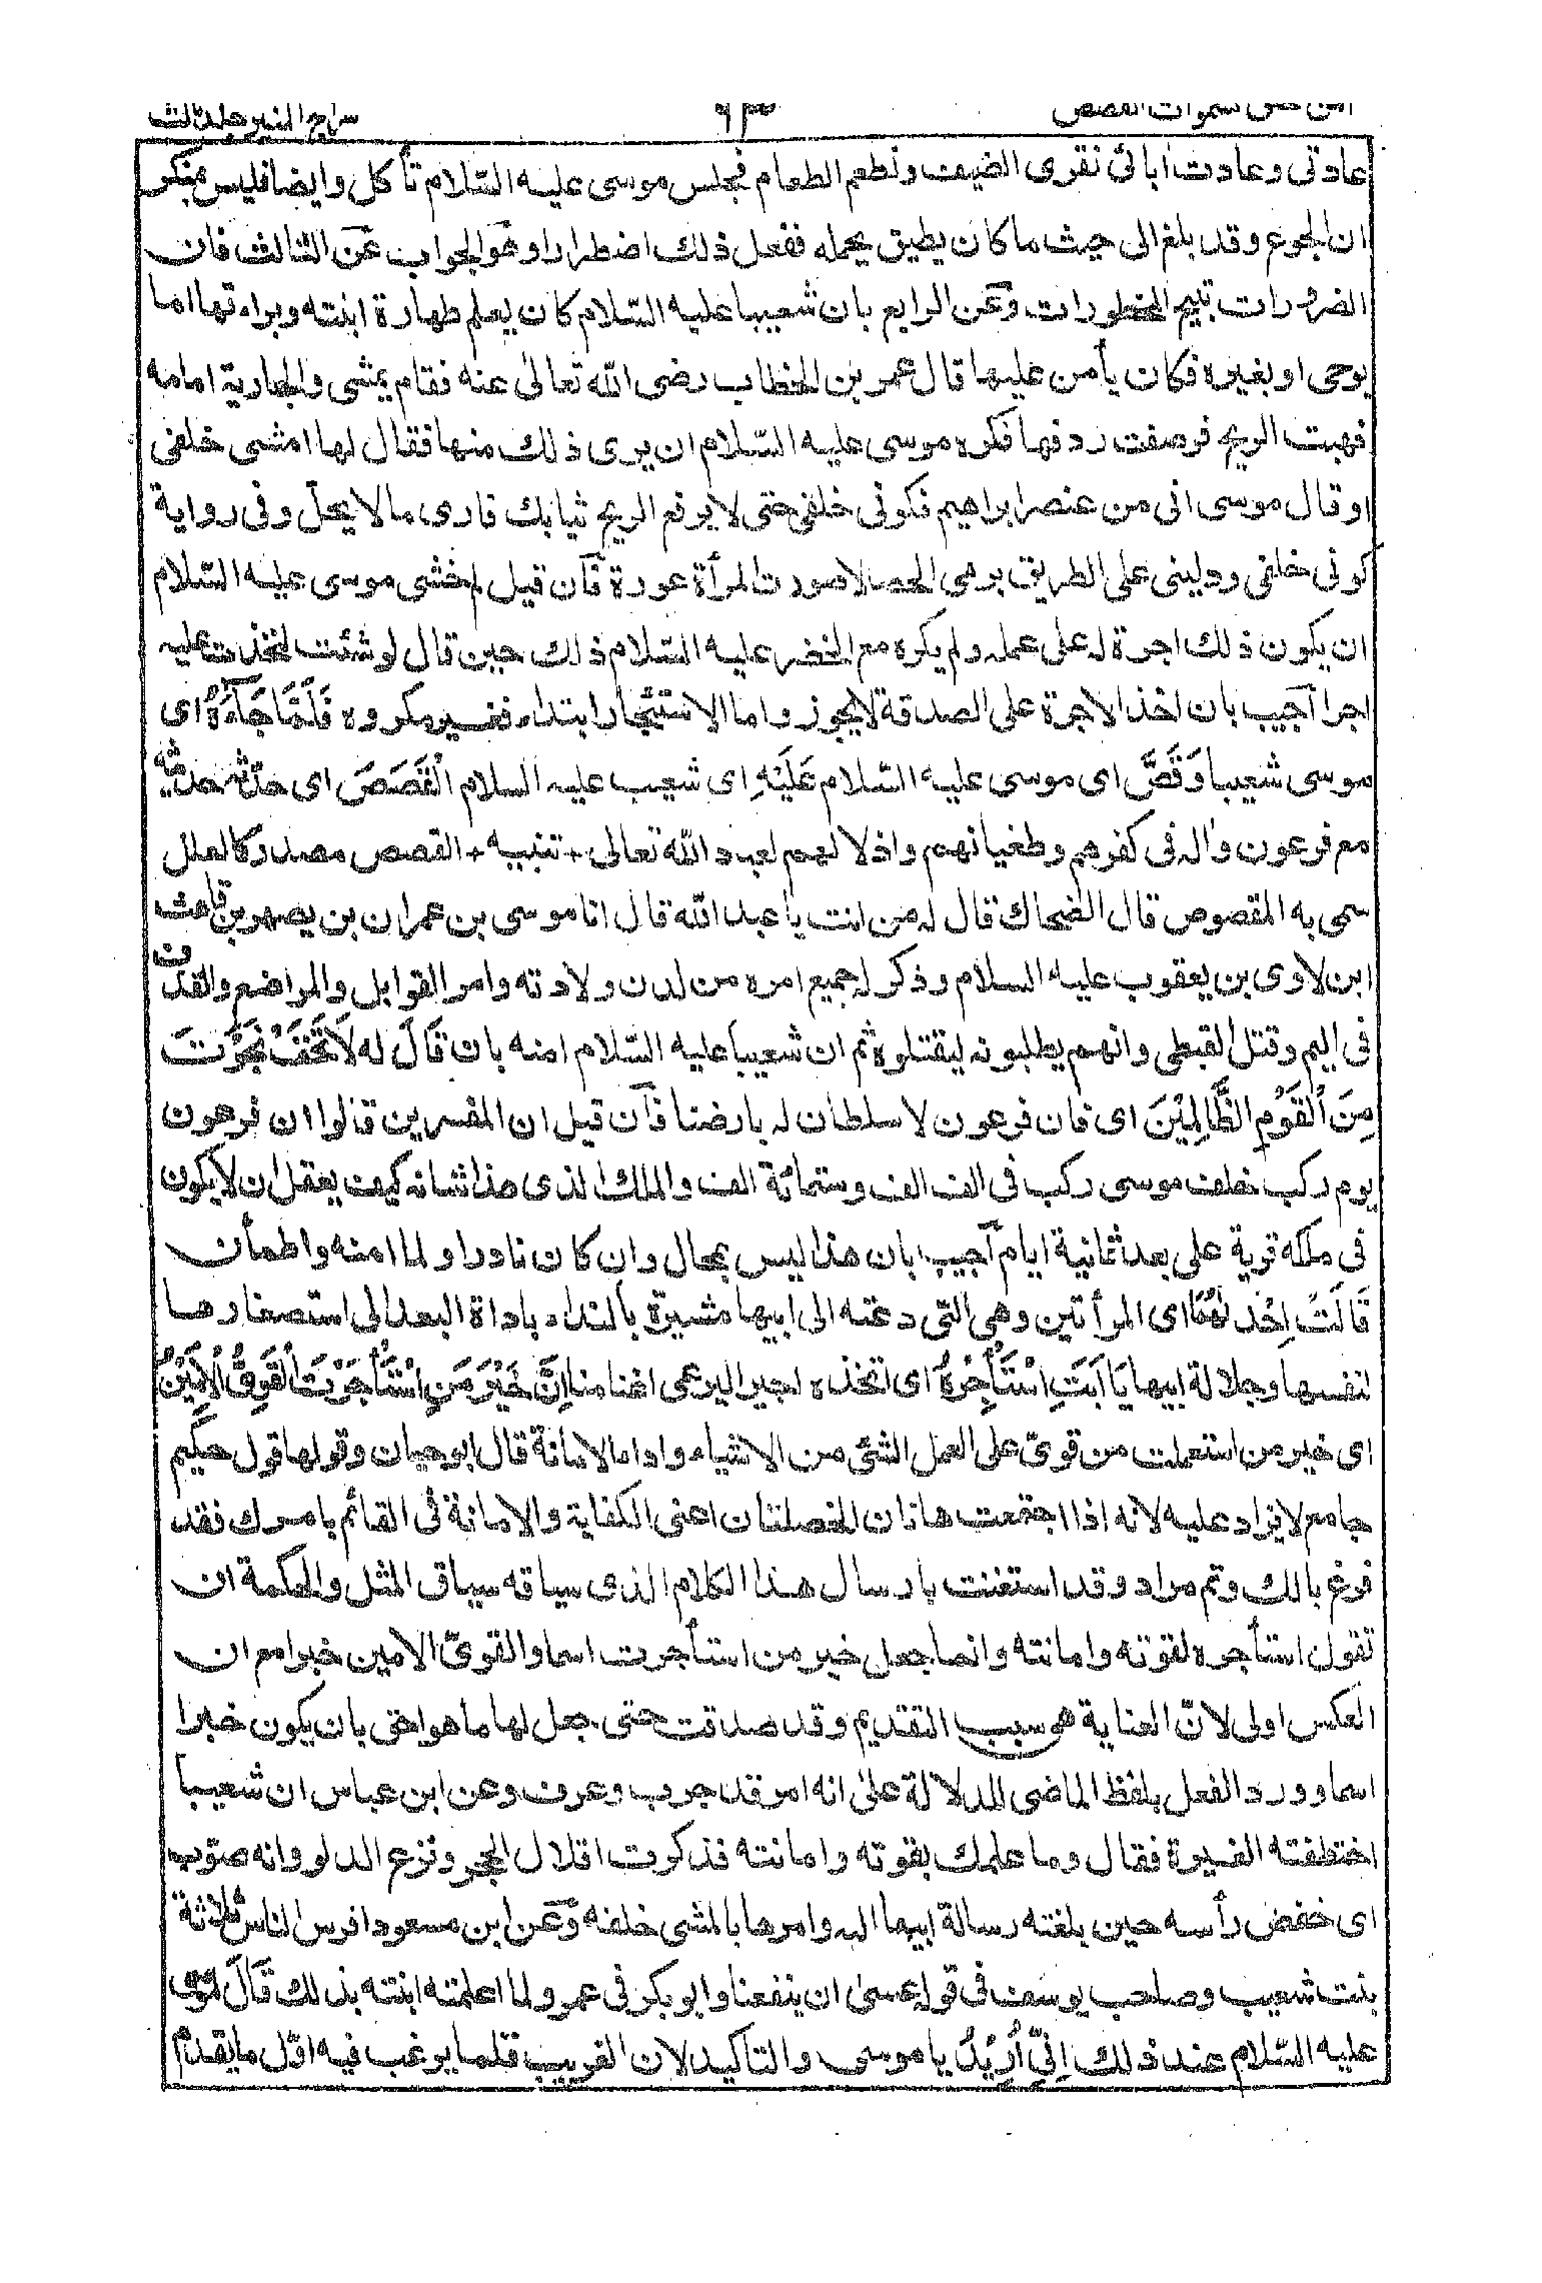 امن خلق سموات القصص ٩٣ سراج المنير جلد ثالث
عادتی وعادت اٰبائی نقری الضیف ونطعم الطعام فجلس موسی علیه السّلام تأکل وایضافلیس بمنکر
ان الجوع وقد بلغ الی حیث ماکان یطیق یحمله ففعل ذلك اضطرارا وهو الجواب عن الثالث فان
الضرورات تبیح المحظورات وعن الرابع بان شعیبا علیه السّلام کان یعلم طهارة ابنته وبراءتها اما
بوحی او بغیره فکان یأمن علیها قال عمر بن الخطاب رضی الله تعالیٰ عنه فقام یمشی والجاریة امامه
فهبت الریح فوصفت ردفها فکره موسی علیه السّلام ان یری ذلك منها فقال لها امشی خلفی
او قال موسی انی من عنصر ابراهیم فکونی خلفی حتی لا یرفع الریح ثیابك فاری مالا یحلّ وفی روایة
کونی خلفی ودلینی علی الطریق برمی الحصا لا صوت المرأة عورة فآن قیل لم خشی موسی علیه السّلام
ان یکون ذلك اجرة له علی عمله ولم یکره مع الخضر علیه السّلام ذلك حین قال لو شئت لتخذت علیه
اجرا آجیب بان اخذ الاجرة علی الصدقة لا یجوز واما الاستیجار ابتداء فغیر مکروه فَلَمَّا جَآءَهُ ای
موسی شعیبا وَقَصَّ ای موسی علیه السّلام عَلَیْهِ ای شعیب علیه السلام الْقَصَصَ ای حدّثه حدیثه
مع فرعون واٰله فی کفرهم وطغیانهم واذلالهم لعباد الله تعالیٰ + تنبیه + القصص مصدر کالعلل
سمی به المقصوص قال الضحاك قال له من انت یا عبد الله قال انا موسی بن عمران بن یصهر بن قاهث
ابن لاوی بن یعقوب علیه السلام وذکر له جمیع امره من لدن ولادته وامر القوابل والمراضع والقذف
فی الیم وقتل القبطی وانهم یطلبونه لیقتلوه ثم ان شعیبا علیه السّلام امنه بان قَالَ له لَا تَخَفْ نَجَوْتَ
مِنَ الْقَوْمِ الظَّالِمِیْنَ ای فان فرعون لا سلطان له بارضنا فآن قیل ان المفسرین قالوا ان فرعون
یوم رکب خلف موسی رکب فی الف الف وستمائة الف والملك الذی هذا شانه کیف یعقل ان لا یکون
فی ملکه قریة علی بعد ثمانیة ایام آجیب بان هذا لیس بمحال وان کان نادرا ولما امنه واطمأن
قَالَتْ اِحْدٰهُمَا ای المرأتین وهی التی دعته الی ابیها مشیرة بالنداء باداة البعد الی استصغارها
لنفسها وجلالة ابیها یَا اَبَتِ اسْتَأْجِرْهُ ای اتخذه اجیرا لیرعی اغنامنا اِنَّ خَیْرَ مَنِ اسْتَأْجَرْتَ الْقَوِیُّ الْاَمِیْنُ
ای خیر من استعملت من قویّ علی العمل الشئ من الاشیاء واداء الامانة قال ابو حیان وقولها قول حکیم
جامع لا یزاد علیه لانه اذا اجتمعت هاتان الخصلتان اعنی الکفایة والامانة فی القائم بامرك فقد
فرغ بالك وتم مراد وقد استغنت بارسال هذا الکلام الذی سیاقه سیاق المثل والحکمة ان
تقول استأجره لقوته وامانته وانما جعل خیر من استأجرت اسما والقویّ الامین خبرا مع ان
العکس اولی لانّ العنایة هو سبب التقدیم وقد صدقت حتی جعل لها ما هو احق بان یکون خبرا
اسما وورد الفعل بلفظ الماضی للدلالة علیٰ انه امر قد جرب وعرف وعن ابن عباس ان شعیبا
اختطفته الغیرة فقال وما علمك بقوته وامانته فذکرت اقلال الحجر ونزع الدلو وانه صوّب
ای خفض رأسه حین بلغته رسالة ابیها الیه وامرها بالمشی خلفه وعن ابن مسعود افرس الناس ثلاثة
بنت شعیب وصاحب یوسف فی قوله عسیٰ ان ینفعنا وابو بکر فی عمر ولما اعلمته ابنته بذلك قَالَ موسی
علیه السّلام عند ذلك اِنِّیْ اُرِیْدُ یا موسی والتاکید لان الغریب قلما یرغب فیه اوّل ما یقدم